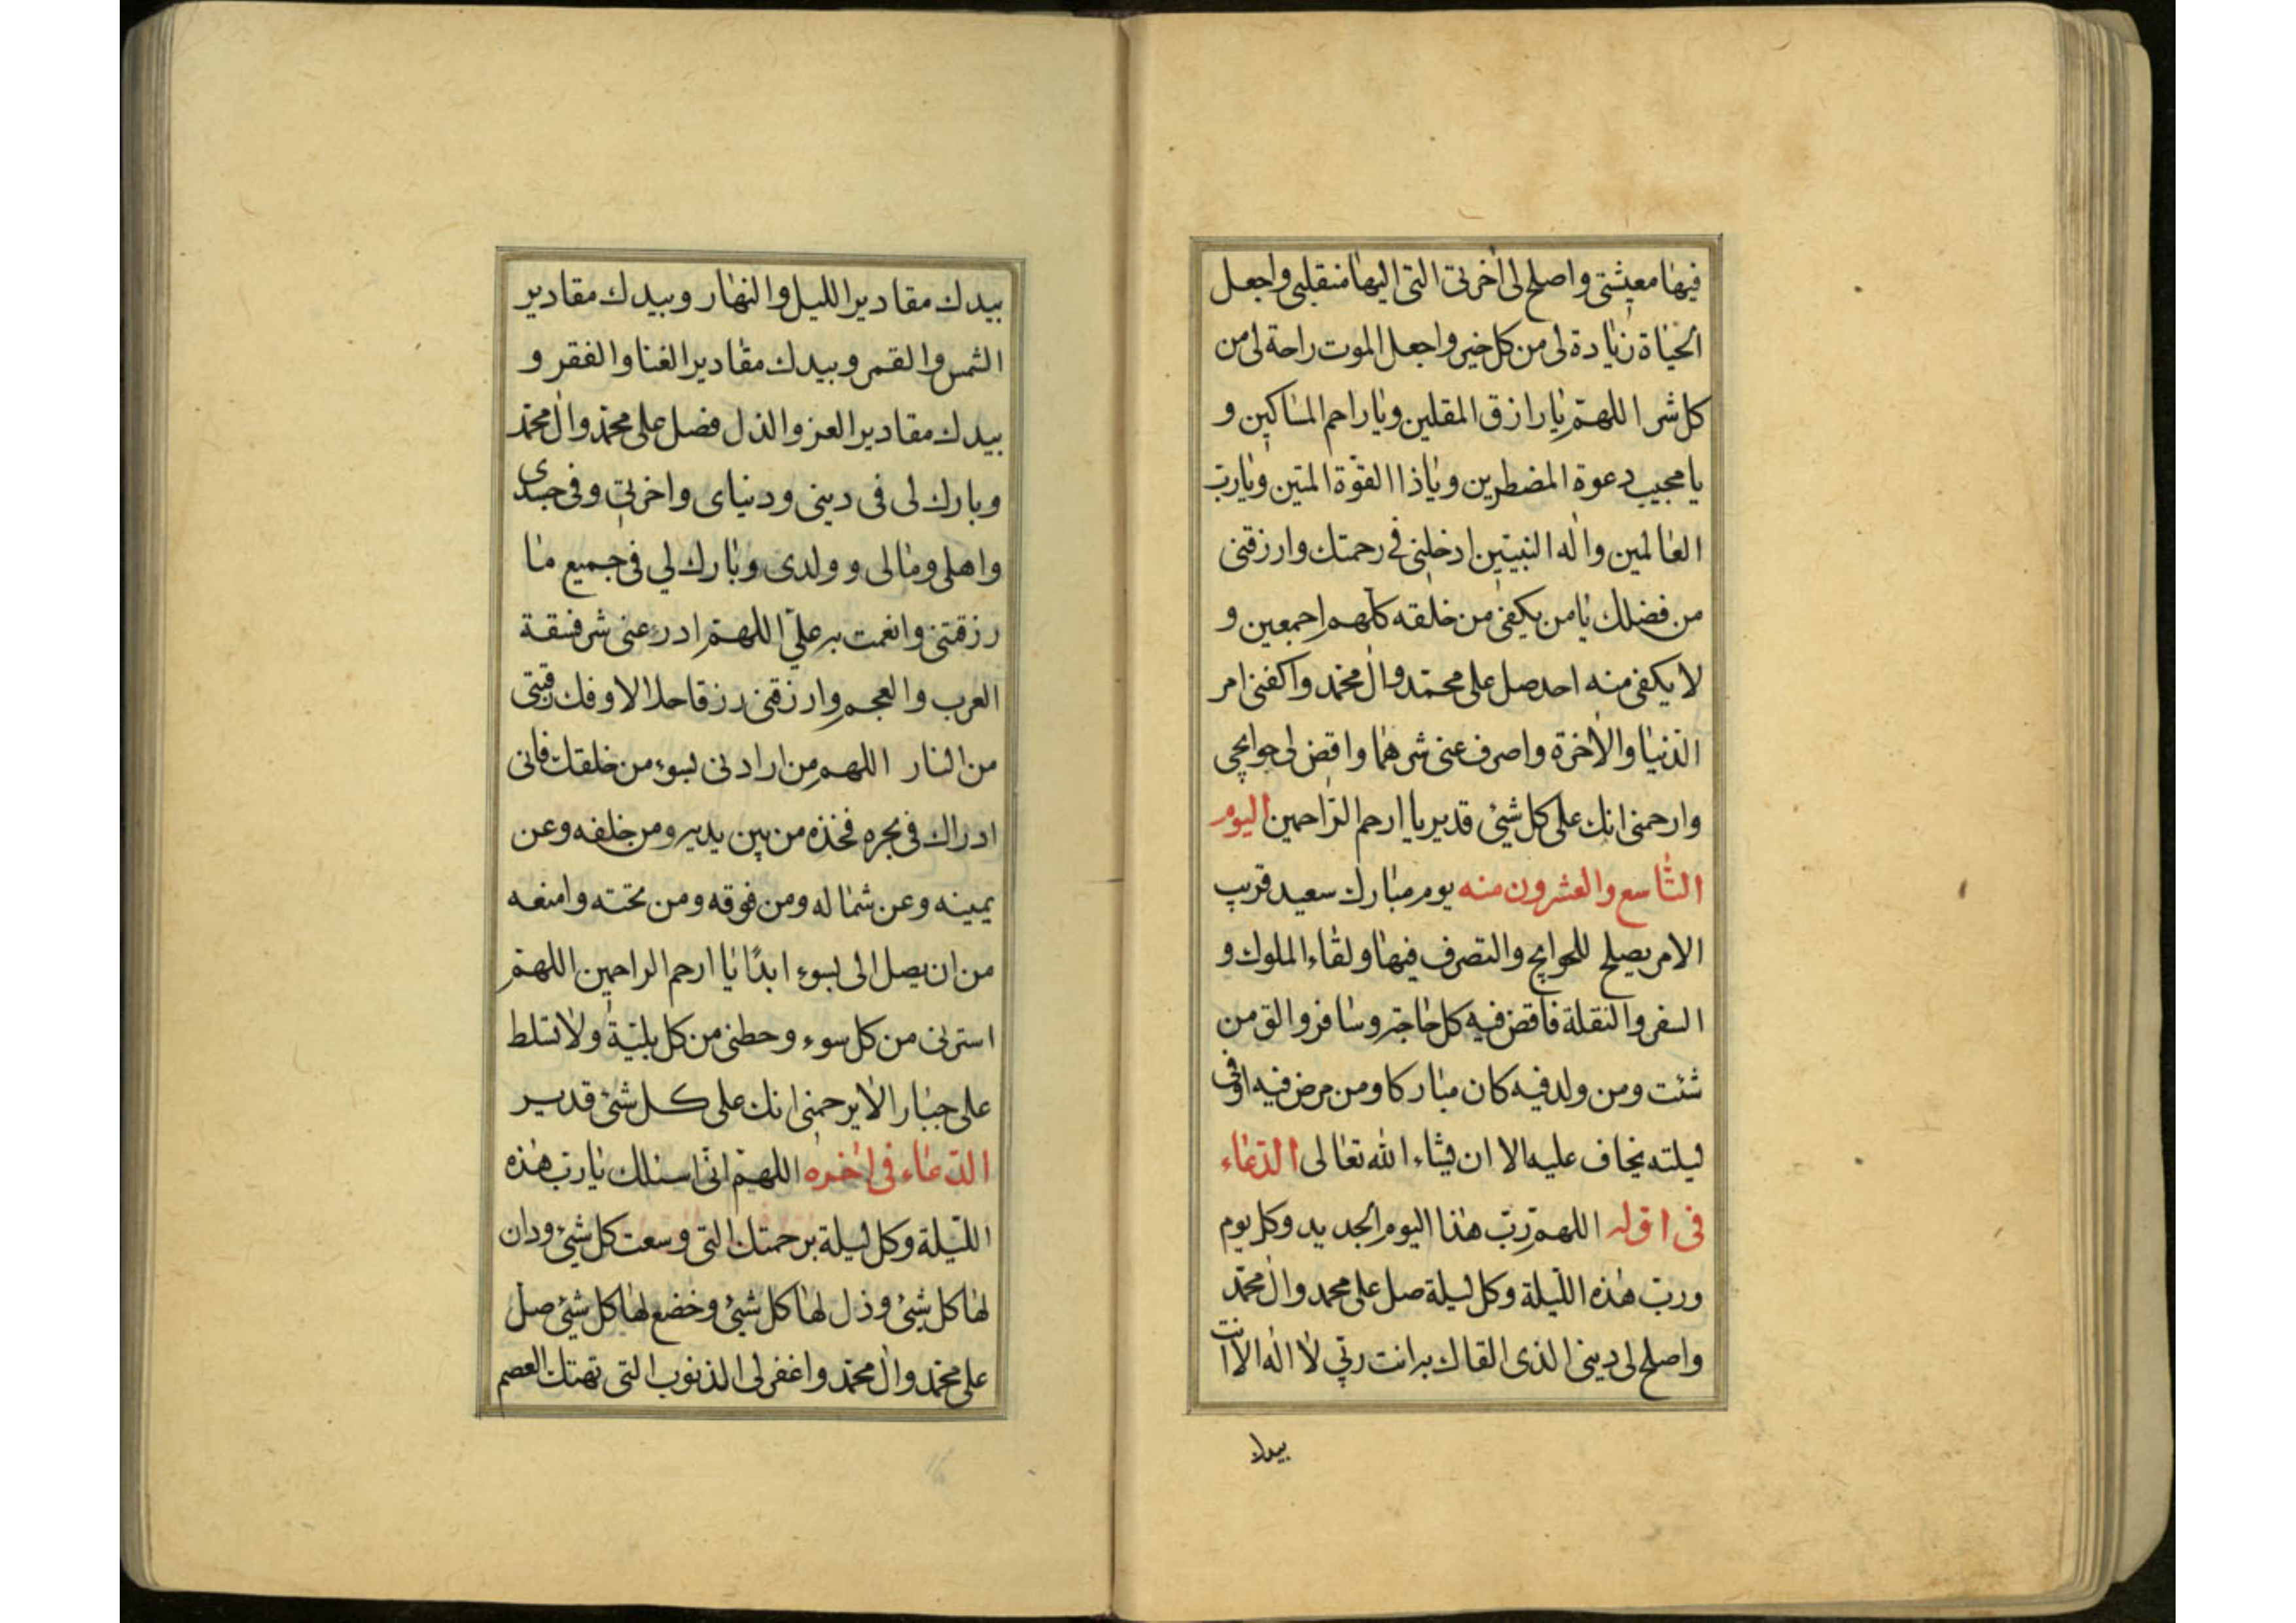 فيها معيشتى واصلح لى اخرتى التى اليها منقلبى واجعل
الحياة زيادة لى من كل خير واجعل الموت راحة لى من
كل شر اللهم يا رازق المقلين ويا راحم المساكين و
يا مجيب دعوة المضطرين ويا ذا القوة المتين ويا رب
العالمين واله النبيين ادخلنى فى رحمتك وارزقنى
من فضلك يا من يكفى من خلقه كلهم اجمعين و
لا يكفى منه احد صل على محمد وال محمد واكفنى امر
الدنيا والاخرة واصرف عنى شرهما واقض لى حوايجى
وارحمنى انك على كل شئ قدير يا ارحم الراحمين اليوم
التاسع والعشرون منه يوم مبارك سعيد قريب
الامر يصلح للحوايج والتصرف فيها ولقاء الملوك و
السفر والنقلة فاقض فيه كل حاجة وسافر والق من
شئت ومن ولد فيه كان مباركا ومن مرض فيه او فى
ليلته يخاف عليه الا ان يشاء الله تعالى الدعاء
فى اوله اللهم رب هذا اليوم الجديد وكل يوم
ورب هذه الليلة وكل ليلة صل على محمد وال محمد
واصلح لى دينى الذى القاك به انت ربى لا اله الا انت
بيدك
بيدك مقادير الليل والنهار وبيدك مقادير
الشمس والقمر وبيدك مقادير الغنا والفقر و
بيدك مقادير العز والذل فصل على محمد وال محمد
وبارك لى فى دينى ودنياى واخرتى وفى جسدى
واهلى ومالى وولدى وبارك لى فى جميع ما
رزقتنى وانعمت به على اللهم ادرء عنى شر فسقة
العرب والعجم وارزقنى رزقا حلالا وفك رقبتى
من النار اللهم من ارادنى بسوء من خلقك فانى
ادراك فى نحره فخذه من بين يديه ومن خلفه وعن
يمينه وعن شماله ومن فوقه ومن تحته وامنعه
من ان يصل الى بسوء ابدًا يا ارحم الراحمين اللهم
استرنى من كل سوء وحطنى من كل بلية ولا تسلط
على جبارا لا يرحمنى انك على كل شئ قدير
الدعاء فى اخره اللهم انى اسئلك يا رب هذه
الليلة وكل ليلة برحمتك التى وسعت كل شئ ودان
لها كل شئ وذل لها كل شئ وخضع لها كل شئ صل
على محمد وال محمد واغفر لى الذنوب التى تهتك العصم